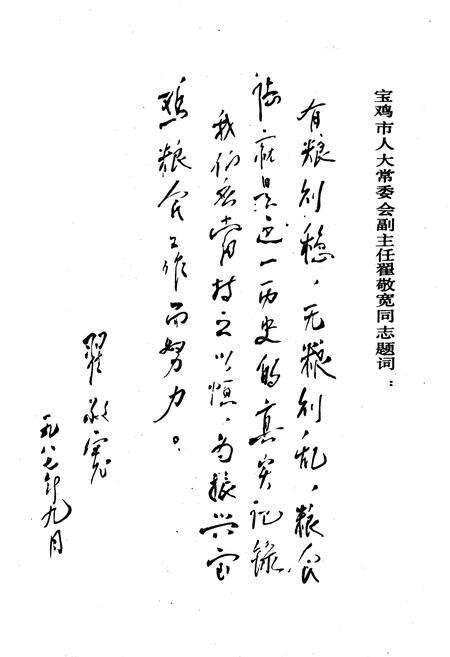 宝鸡市人大常委会副主任翟敬宽同志题词：
有粮则稳，无粮则乱，粮食
志就是这一历史的真实记录
我们应当持之以恒，为振兴宝
鸡粮食工作而努力。
翟敬宽
一九八七年九月